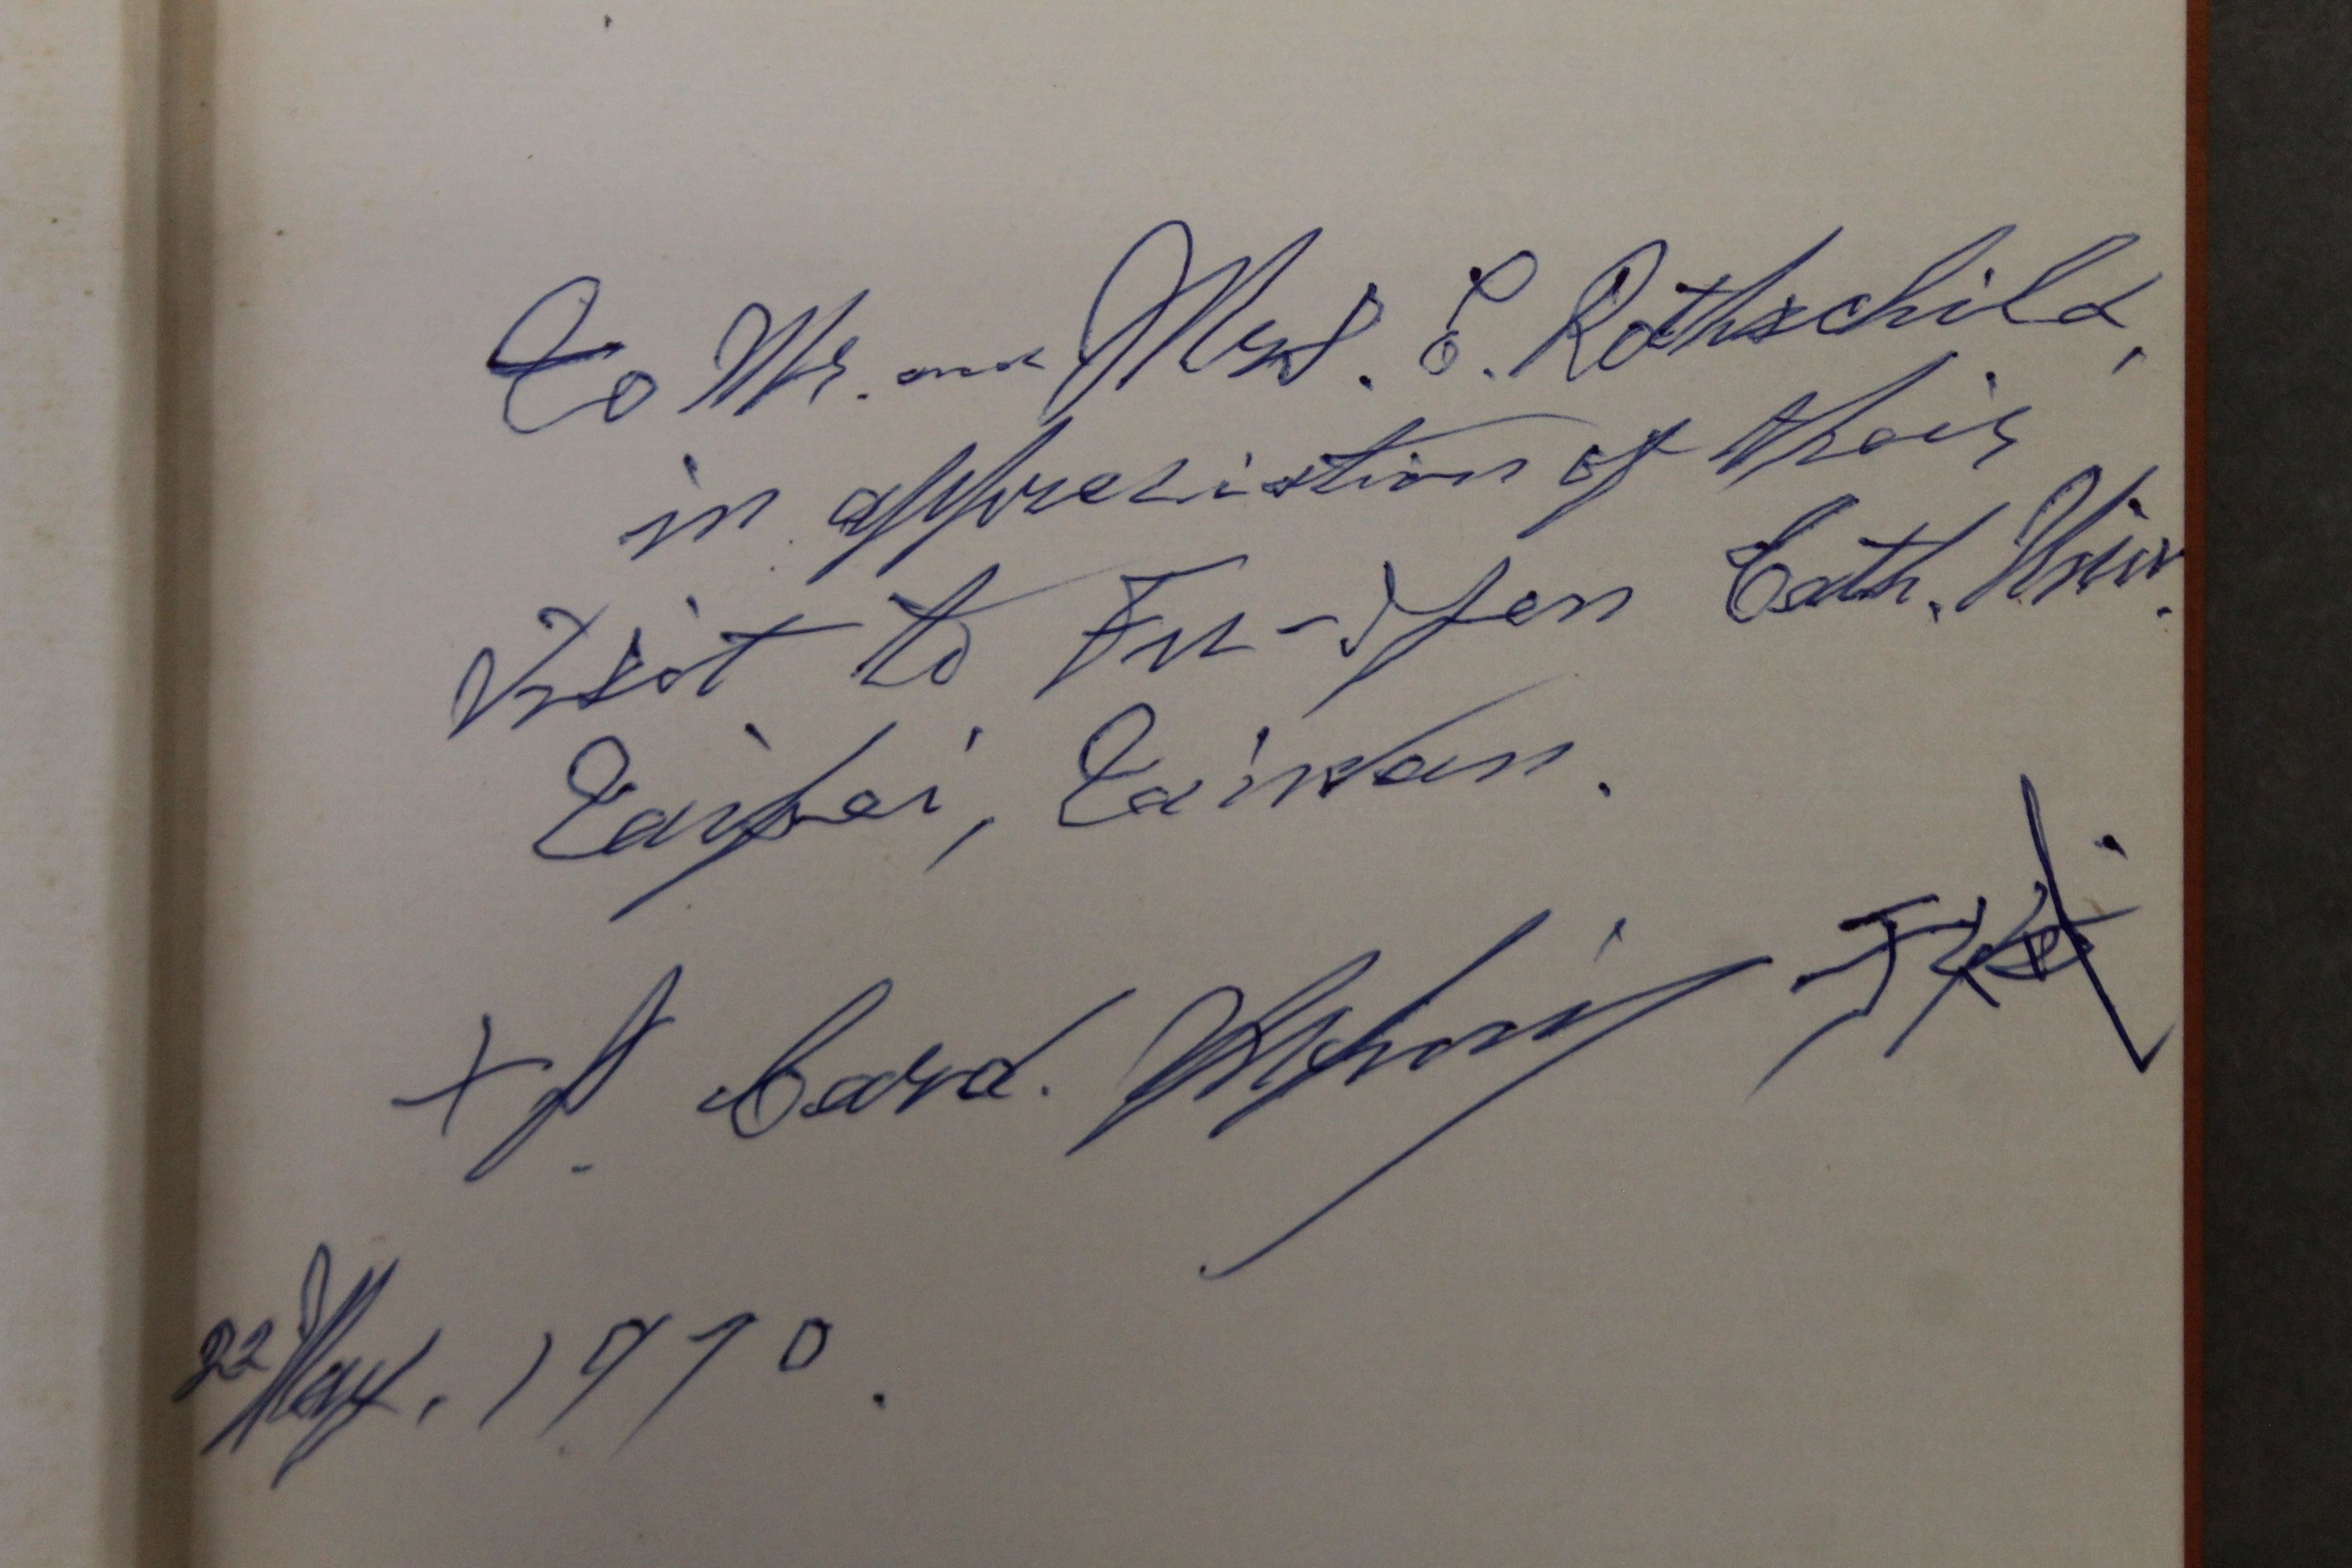 To Mr. and Mrs. E. Rothschild,
in appreciation of their
Visit to Fu-Jen Cath. Univ.
Taipei, Taiwan.
+ P. Card. Yupin 于斌
22 May, 1970.